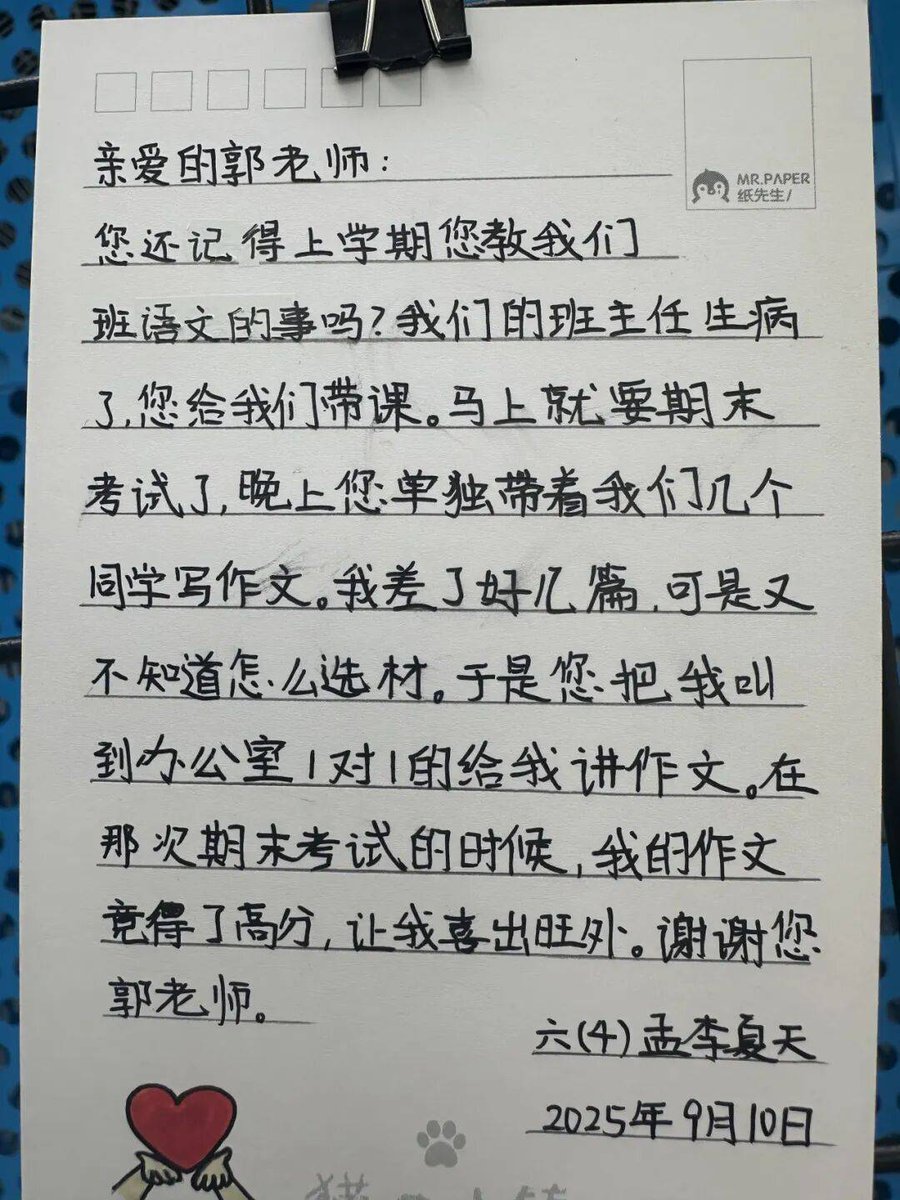 MR.PAPER
纸先生/
亲爱的郭老师:
您还记得上学期您教我们
班语文的事吗?我们的班主任生病
了,您给我们带课。马上就要期末
考试了,晚上您单独带着我们几个
同学写作文。我差了好几篇,可是又
不知道怎么选材。于是您把我叫
到办公室1对1的给我讲作文。在
那次期末考试的时候,我的作文
竟得了高分,让我喜出旺外。谢谢您
郭老师。
六(4)孟李夏天
2025年9月10日